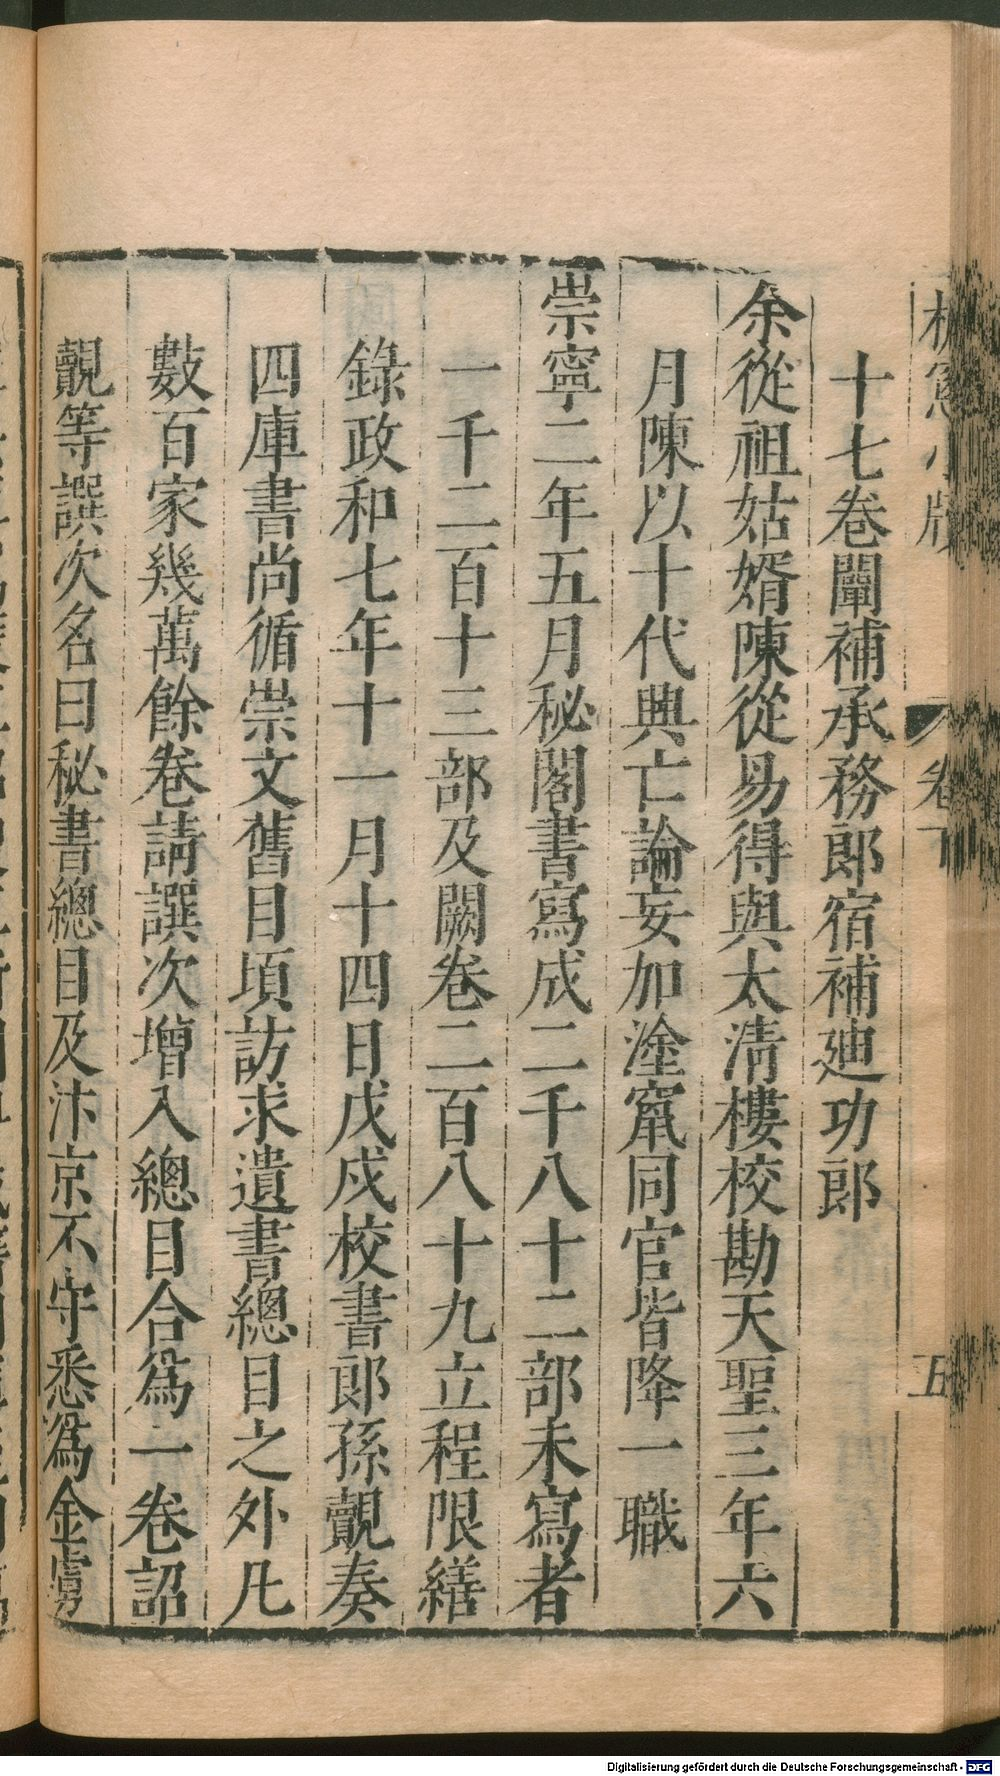 十七卷闡補承務郎宿補廸功郎
余從祖姑婿陳從易得與太淸樓校勘天聖三年六
月陳以十代興亡論妄加塗竄同官皆降一職
崇寧二年五月秘閣書寫成二千八十二部未寫者
一千二百十三部及闕卷二百八十九立程限繕
錄政和七年十一月十四日戊戍校書郎孫覿奏
四庫書尚循崇文舊目頃訪求遺書總目之外凡
數百家幾萬餘卷請譔次增入總目合爲一卷詔
覿等譔次名曰秘書總目及汴京不守悉爲金虜
卷下
五
Digitalisierung gefördert durch die Deutsche Forschungsgemeinschaft - DFG